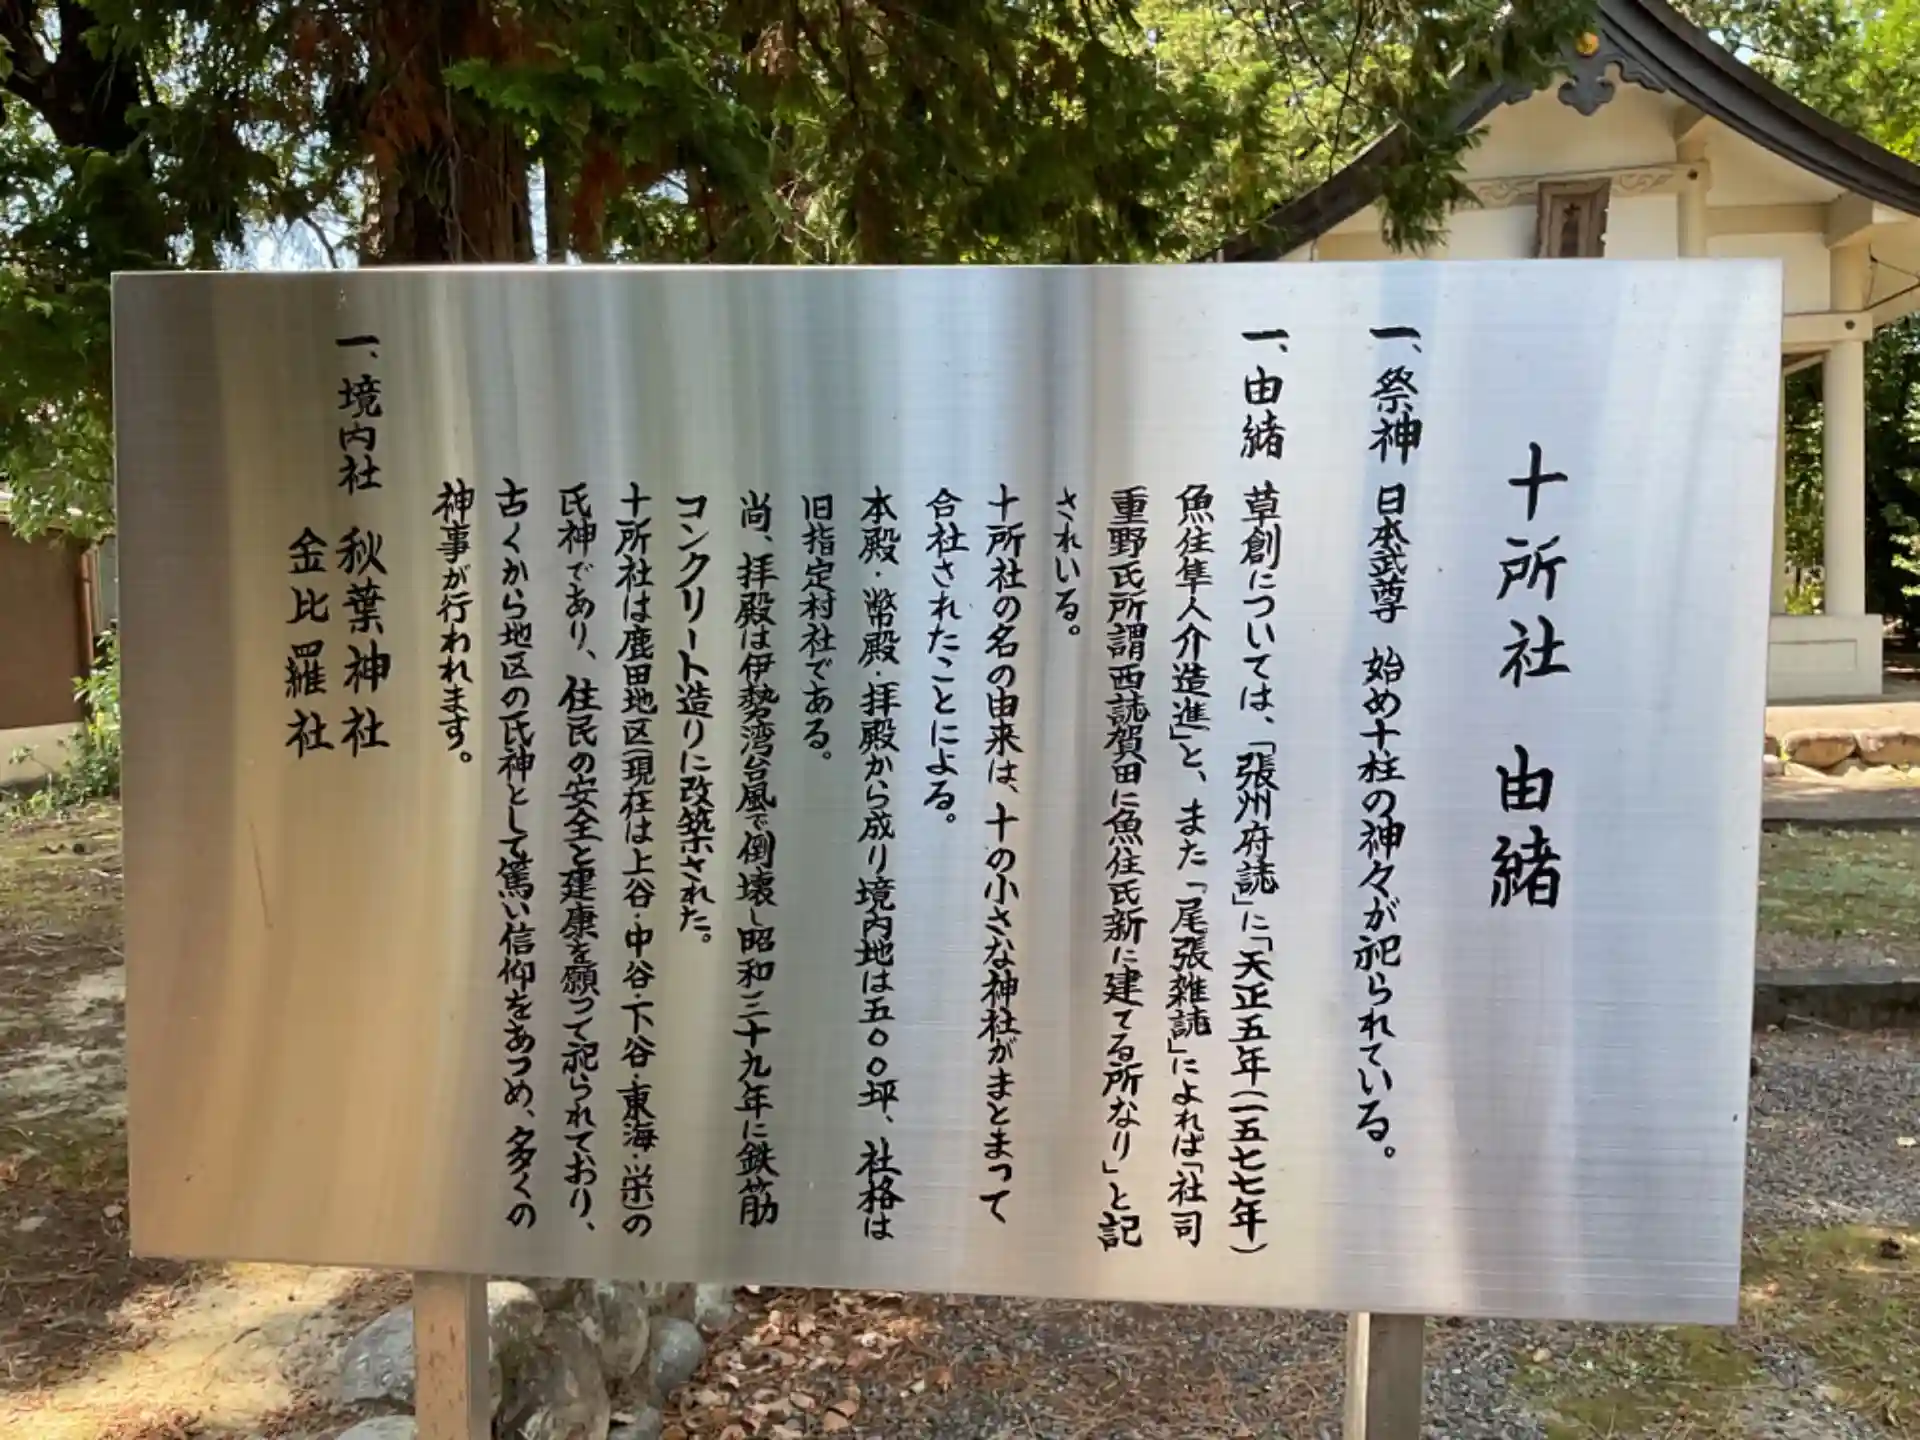 十所社 由緒
一、祭神 日本武尊 始め十柱の神々が祀られている。
一、由緒 草創については、「張州府誌」に「天正五年(一五七七年)
魚住隼人介造進」と、また「尾張雑誌」によれば「社司
重野氏所謂西誌賀田に魚住氏新に建てる所なり」と記
されいる。
十所社の名の由来は、十の小さな神社がまとまって
合社されたことによる。
本殿・幣殿・拝殿から成り境内地は五〇〇坪、社格は
旧指定村社である。
尚、拝殿は伊勢湾台風で倒壊し昭和三十九年に鉄筋
コンクリート造りに改築された。
十所社は鹿田地区(現在は上谷・中谷・下谷・東海・栄)の
氏神であり、住民の安全と建康を願つて祀られており、
古くから地区の氏神として篤い信仰をあつめ、多くの
神事が行われます。
一、境内社 秋葉神社
金比羅社